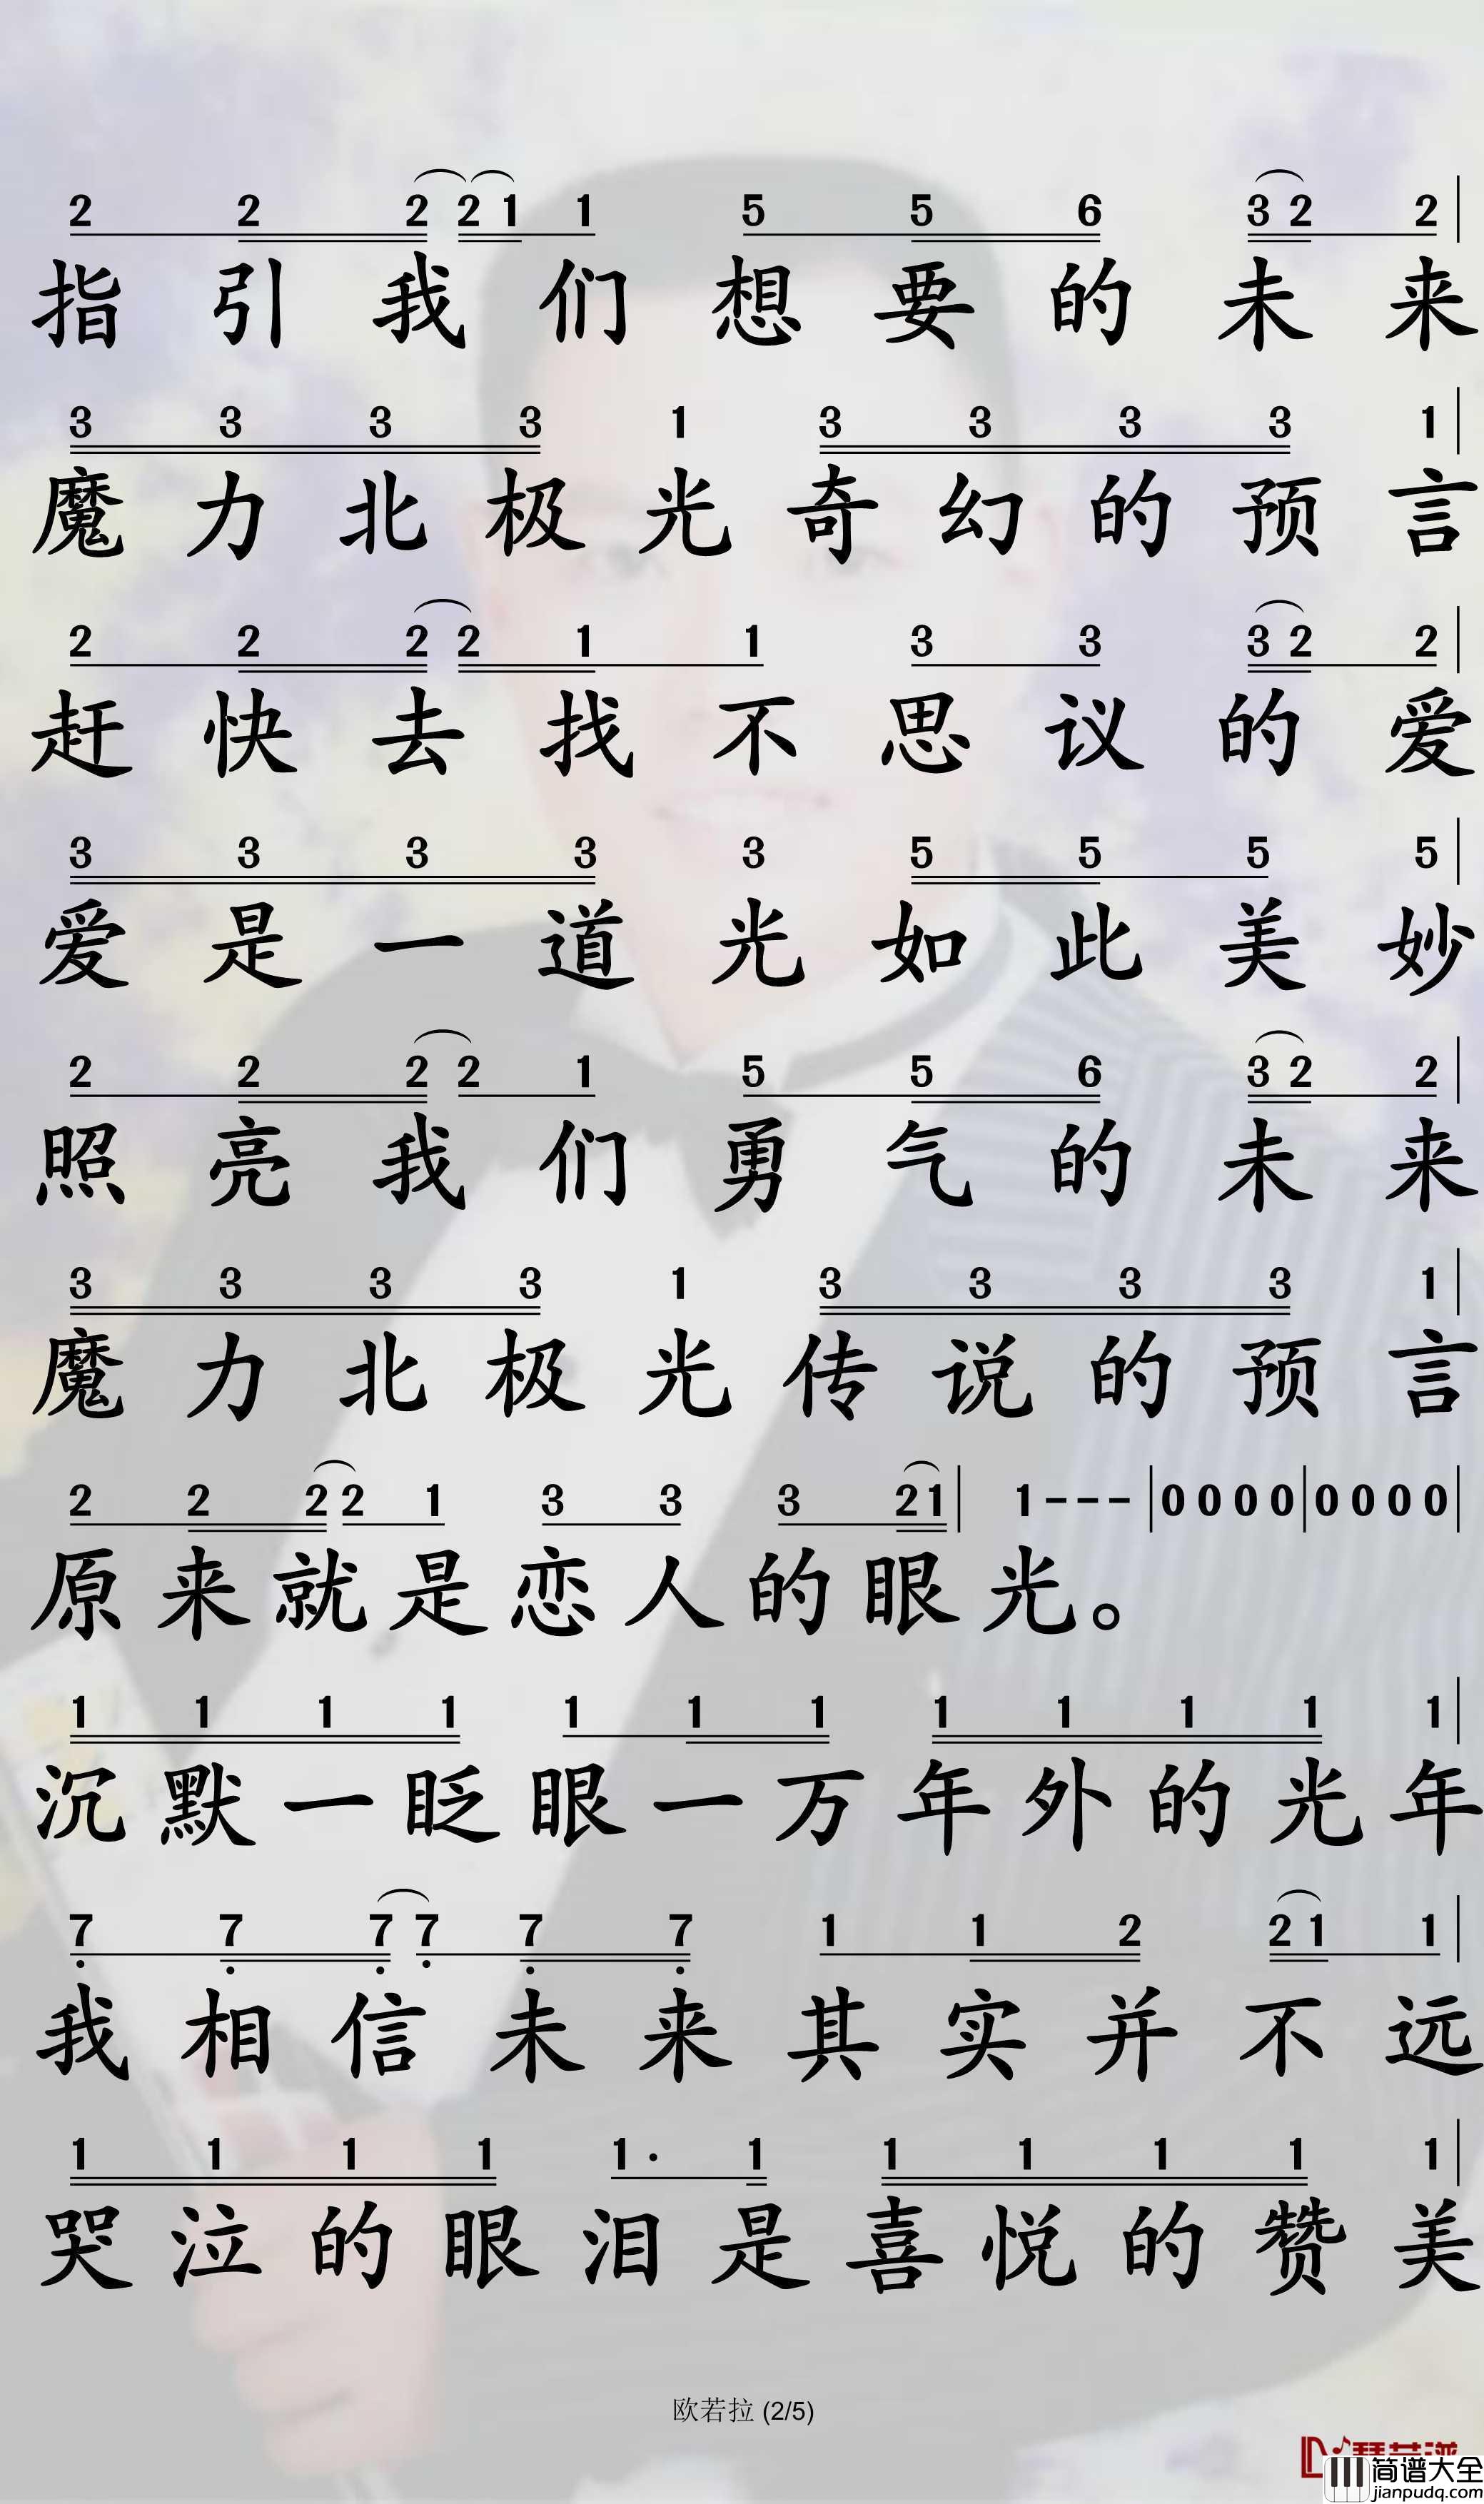 2 2 2 2 1 1 5 5 6 3 2 2
指引我们想要的未来
3 3 3 3 1 3 3 3 3 1
魔力北极光奇幻的预言
2 2 2 2 1 1 3 3 3 2 2
赶快去找不思议的爱
3 3 3 3 3 5 5 5 5
爱是一道光如此美妙
2 2 2 2 1 5 5 6 3 2 2
照亮我们勇气的未来
3 3 3 3 1 3 3 3 3 1
魔力北极光传说的预言
2 2 2 2 1 3 3 3 2 1 1 - - - 0 0 0 0 0 0 0 0
原来就是恋人的眼光。
1 1 1 1 1 1 1 1 1 1 1 1
沉默一眨眼一万年外的光年
7 7 7 7 7 7 1 1 2 2 1 1
我相信未来其实并不远
1 1 1 1 1 · 1 1 1 1 1 1
哭泣的眼泪是喜悦的赞美
欧若拉 (2/5)
简谱大全
jianpudq.com